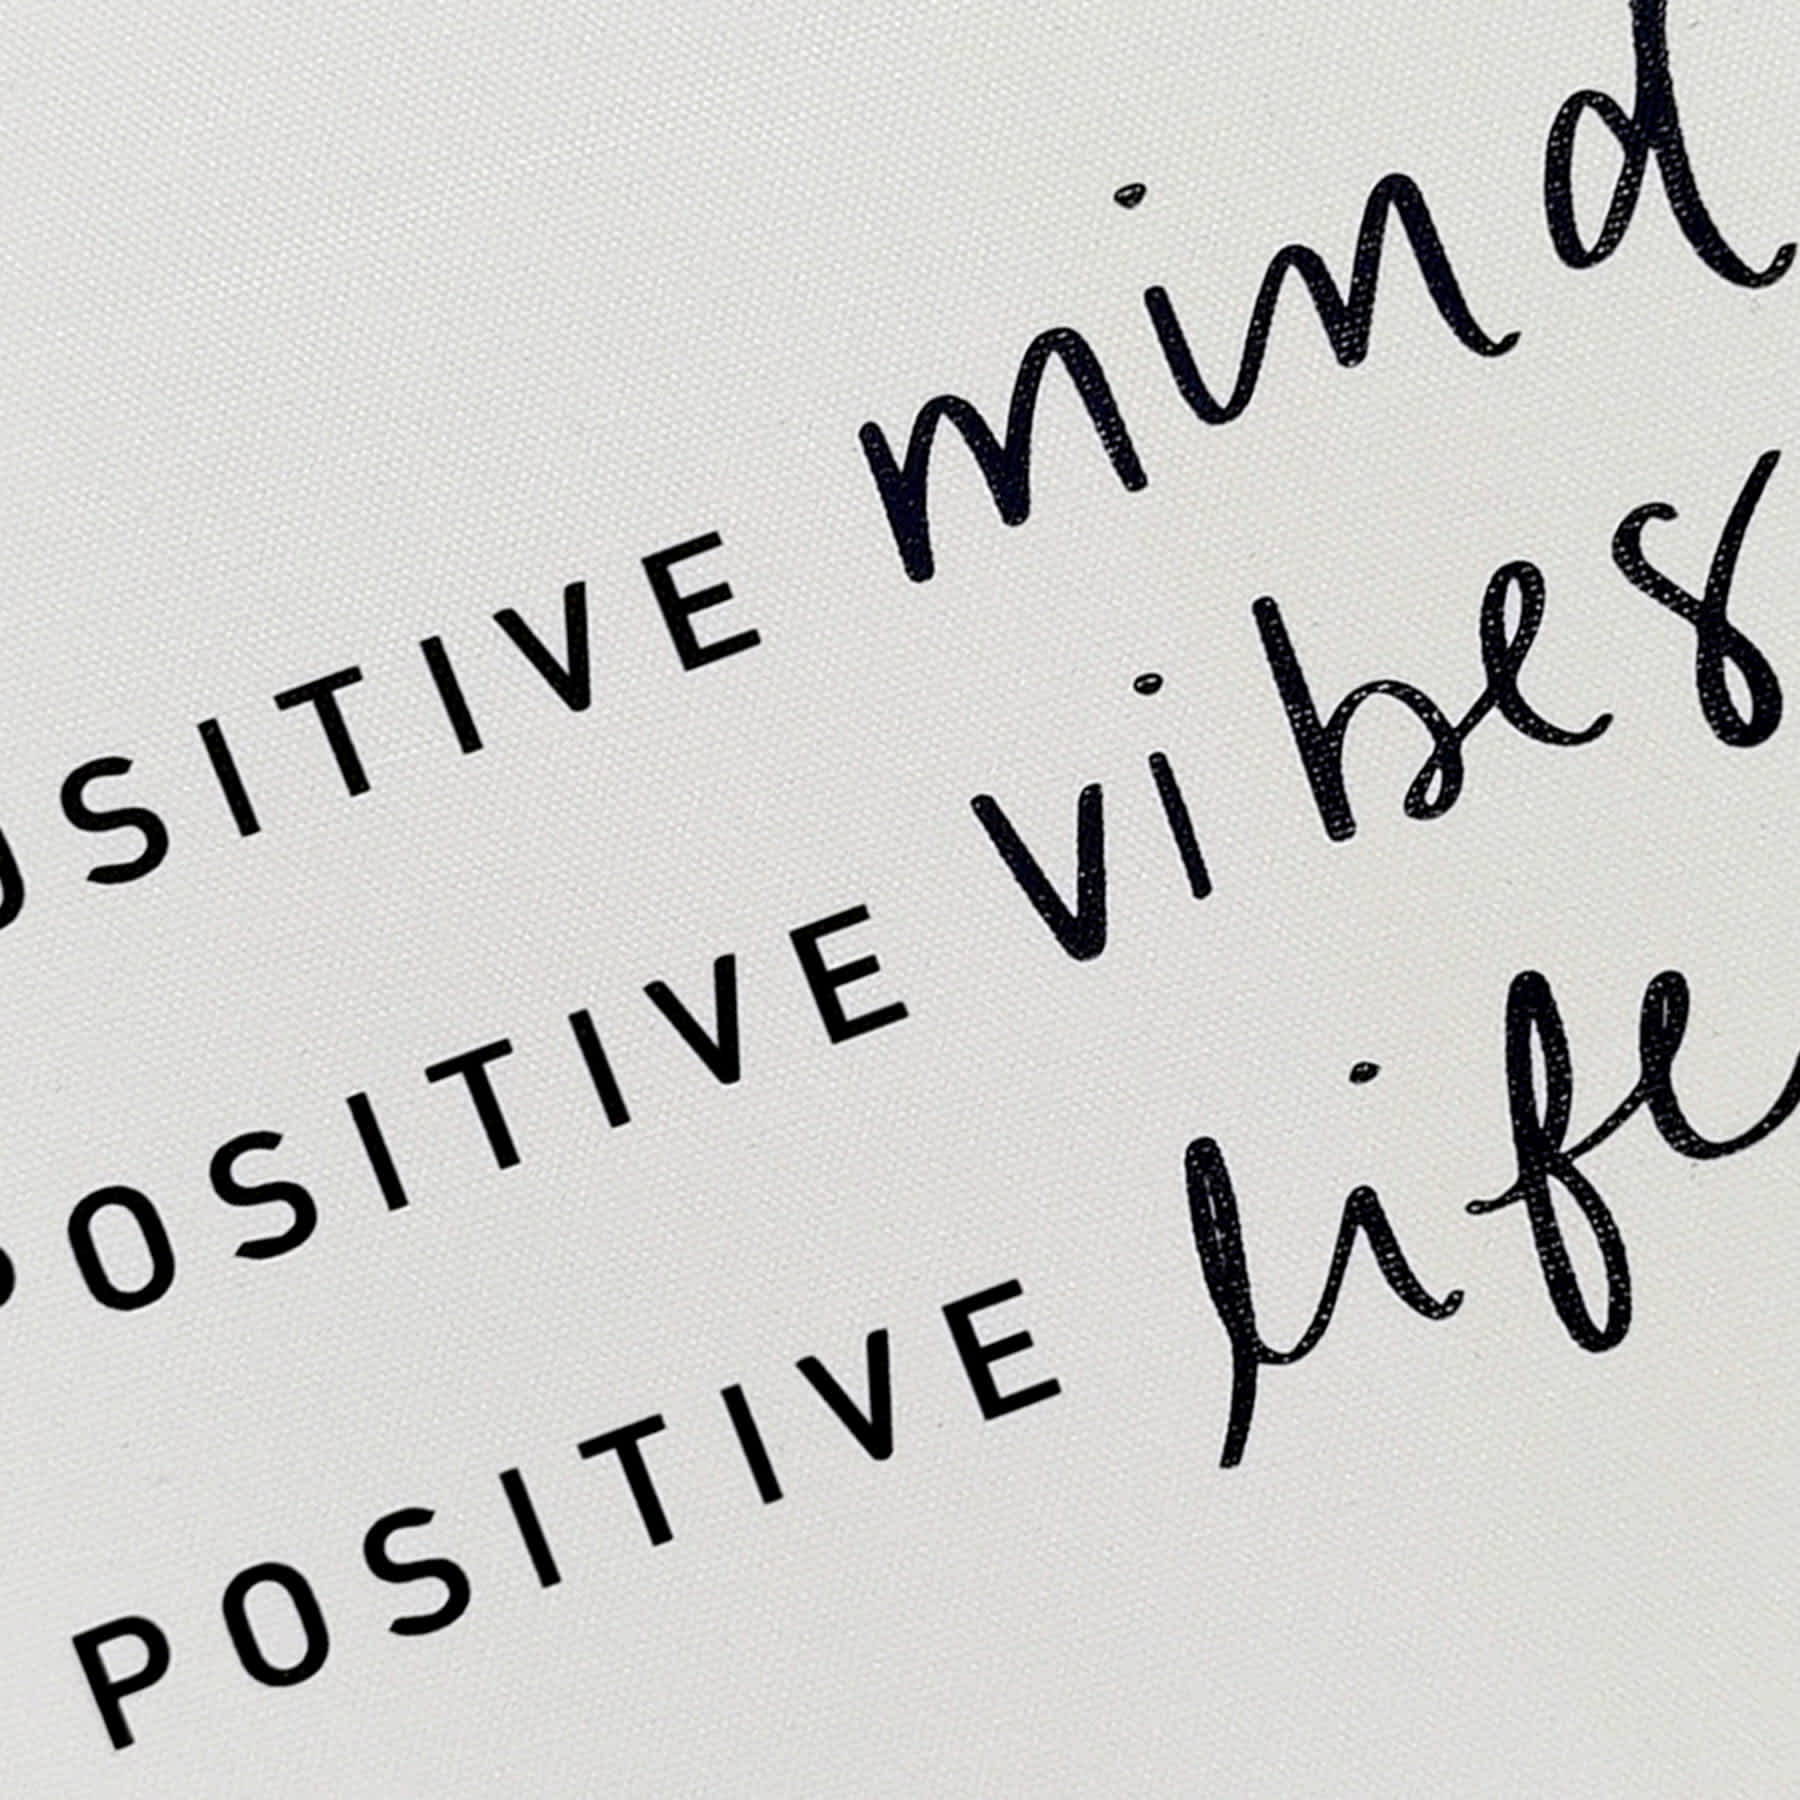 POSITIVE mind
POSITIVE vibes
POSITIVE life